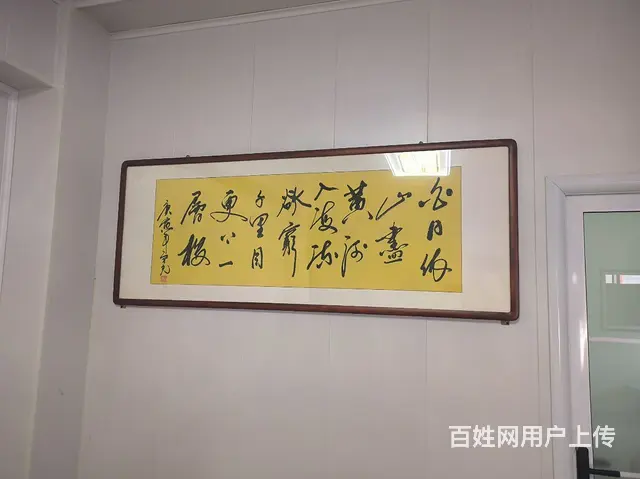 白日依
山盡
黄河
入海流
欲窮
千里目
更上一
層楼
百姓网用户上传